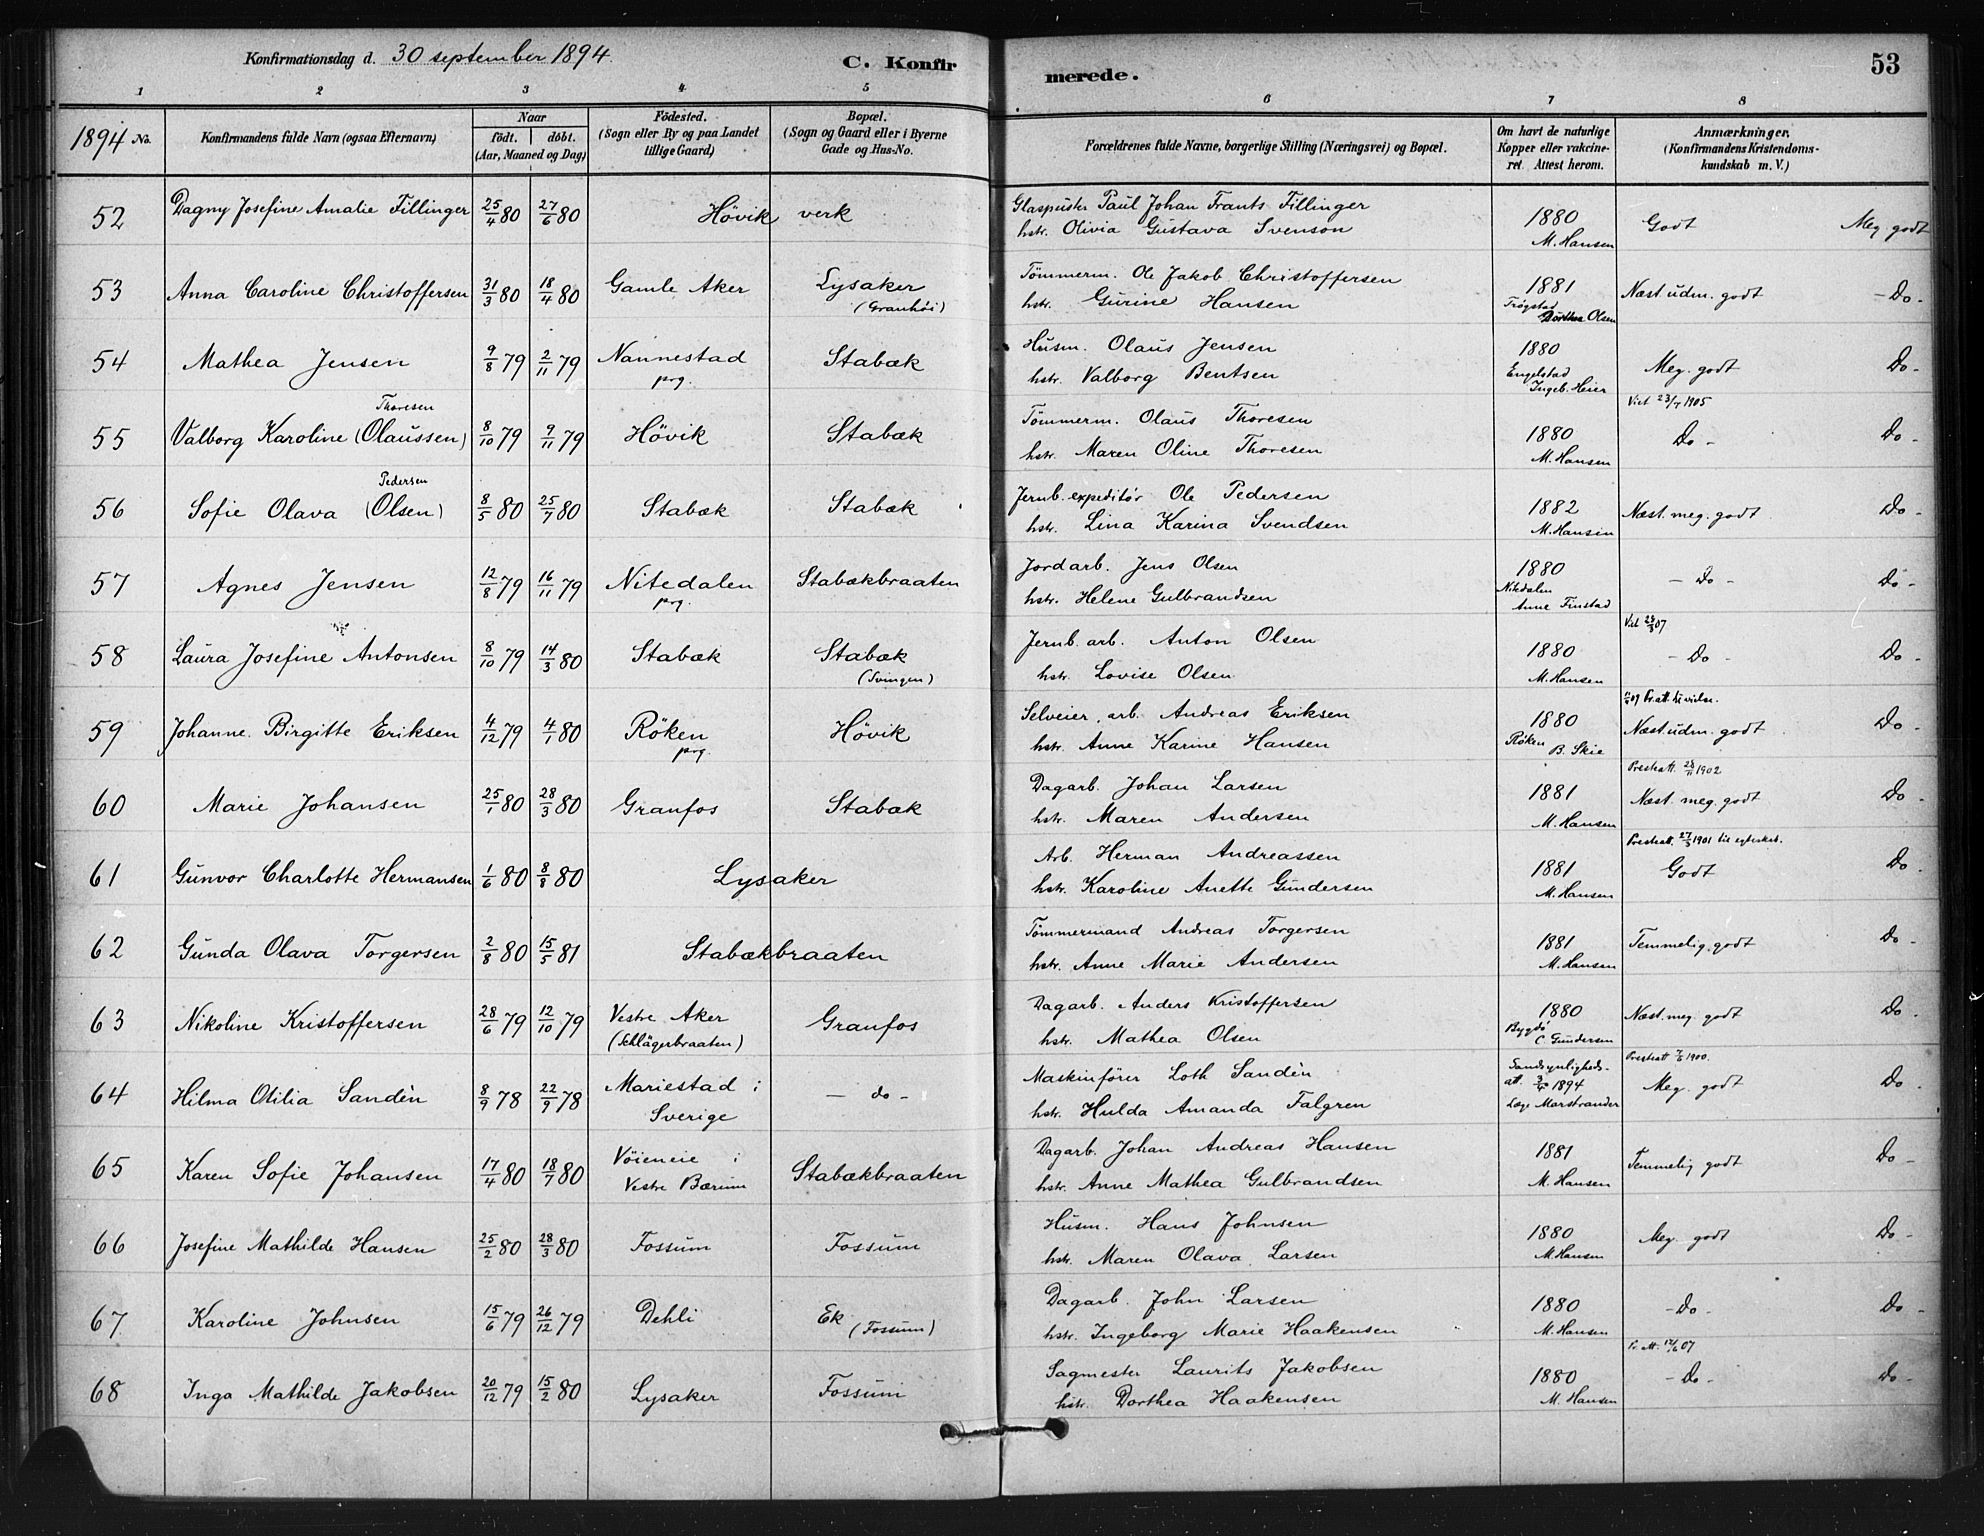 Konfirmationsdag d. 30 september 1894.
C. Konfirmerede.
53
1 2 3 4 5 6 7 8
1894 No.
Konfirmandens fulde Navn (ogsaa Efternavn)
Naar
født. døbt.
(Aar, Maaned og Dag)
Fødested.
(Sogn eller By og paa Landet
tillige Gaard)
Bopæl.
(Sogn og Gaard eller i Byerne
Gade og Hus-No.
Forældrenes fulde Navne, borgerlige Stilling (Næringsvei) og Bopæl.
Om havt de naturlige
Kopper eller vakcine-
ret. Attest herom.
Anmærkninger,
(Konfirmandens Kristendoms-
kundskab m. V.)
52 Dagny Josefine Amalie Fillinger 25/4 80 27/6 80 Høvik verk
Glaspuster Paul Johan Frants Fillinger
hstr. Olivia Gustava Svenson
1880
M. Hansen
Godt Meg. godt
53 Anna Caroline Christoffersen 31/3 80 18/4 80 Gamle Aker Lysaker
(Granhøi)
Tömmerm. Ole Jakob Christoffersen
hstr. Gurine Hansen
1881
Trøgstad
Dorthea Olsen
Næst udm. godt - Do -
54 Mathea Jensen 9/8 79 2/11 79 Nannestad
prg.
Stabæk
Husm. Olaus Jensen
hstr. Valborg Bentsen
1880
Engelstad
Ingeb. Heier
Meg. godt Do -
Viet 23/7 1905
Thoresen
55 Valborg Karoline (Olaussen) 8/10 79 9/11 79 Høvik Stabæk
Tömmerm. Olaus Thoresen
hstr. Maren Oline Thoresen
1880
M. Hansen
Do - Do -
Pedersen
56 Sofie Olava (Olsen) 8/5 80 25/7 80 Stabæk Stabæk
Jernb. expeditör Ole Pedersen
hstr. Lina Karina Svendsen
1882
M. Hansen
Næst. meg. godt Do -
57 Agnes Jensen 12/8 79 16/11 79 Nitedalen
prg.
Stabækbraaten
Jordarb. Jens Olsen
hstr. Helene Gulbrandsen
1880
Nitedalen
Anne Finstad
- Do - Do -
58 Laura Josefine Antonsen 8/10 79 14/3 80 Stabæk Stabæk
(Svingen)
Jernb. arb. Anton Olsen
hstr. Lovise Olsen
1880
M. Hansen
- Do - Do -
59 Johanne Birgitte Eriksen 4/12 79 4/1 80 Röken
prg.
Høvik
Selveier, arb. Andreas Eriksen
hstr. Anne Karine Hansen
1880
Röken B. Skie
Næst. udm. godt Do -
60 Marie Johansen 25/1 80 28/3 80 Granfos Stabæk
Dagarb. Johan Larsen
hstr. Maren Andersen
1881
M. Hansen
Prestatt. 28/11 1902
Næst meg. godt Do -
61 Gunvor Charlotte Hermansen 1/6 80 8/8 80 Lysaker
Arb. Herman Andreassen
hstr. Karoline Anette Gundersen
1881
M. Hansen
Prestatt. 27/3 1901 til egteskab.
Godt Do -
62 Gunda Olava Torgersen 2/8 80 15/5 81 Stabækbraaten
Tömmermand Andreas Torgersen
hstr. Anne Marie Andersen
1881
M. Hansen
Temmelig godt Do -
63 Nikoline Kristoffersen 28/6 79 12/10 79 Vestre Aker
(Schlägerbraaten)
Granfos
Dagarb. Anders Kristoffersen
hstr. Mathea Olsen
1880
Bygdö
C. Gundersen
Næst. meg. godt Do -
64 Hilma Otilia Sandén 8/9 78 22/9 78 Mariestad i
Sverige
- do -
Maskinförer Loth Sandén
hstr. Hulda Amanda Falgren
Sandsynligheds-
att. 1894
Læge Marstrander
Meg. godt Do -
65 Karen Sofie Johansen 17/4 80 18/7 80 Vöieneie i
Vestre Bærum
Stabækbraaten
Dagarb. Johan Andreas Hansen
hstr. Anne Mathea Gulbrandsen
1881
M. Hansen
Temmelig godt Do -
66 Josefine Mathilde Hansen 25/2 80 28/3 80 Fossum Fossum
Husm. Hans Johnsen
hstr. Maren Olava Larsen
1880
M. Hansen
Meg. godt Do -
67 Karoline Johnsen 15/6 79 26/12 79 Dehli Ek
(Fossum)
Dagarb. John Larsen
hstr. Ingeborg Marie Haakensen
1880
M. Hansen
- Do - Do -
68 Inga Mathilde Jakobsen 20/12 79 15/2 80 Lysaker Fossum
Sagmester Laurits Jakobsen
hstr. Dorthea Haakensen
1880
M. Hansen
- Do - Do -